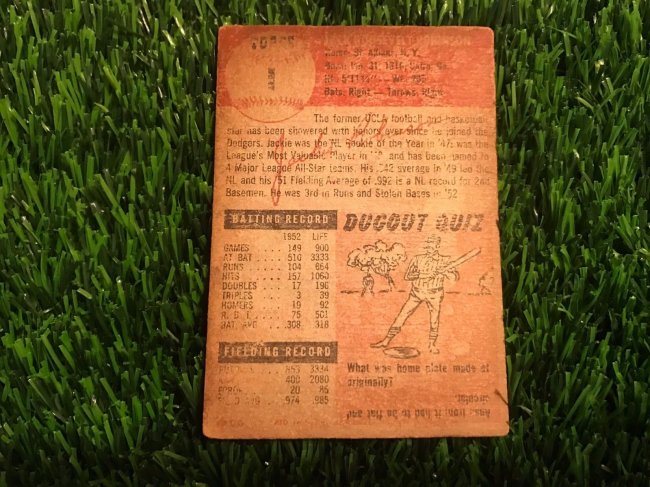 TOPPS
1
Home: St. Albans, N. Y.
Born: Jan. 31, 1919, Cairo, Ga.
Ht.: 5'11½"—Wt.:
Bats: Right — Throws: Right
The former UCLA football and basketball
star has been showered with honors ever since he joined the
Dodgers. Jackie was the NL Rookie of the Year in '47; was the
League's Most Valuable Player in and has been named to
4 Major League All-Star teams. His .342 average in '49 led the
NL and his '51 Fielding Average of .992 is a NL record for 2nd
Basemen. He was 3rd in Runs and Stolen Bases in '52
BATTING RECORD
1952 LIFE
GAMES . . . . 149 900
AT BAT . . . . 510 3333
RUNS . . . . 104 664
HITS . . . . 157 1060
DOUBLES . . . 17 196
TRIPLES . . . 3 39
HOMERS . . . 19 92
R. B. I. . . . . 75 501
BAT. AVG. . . .308 .318
FIELDING RECORD
400 2080
20 86
.974 .985
DUGOUT QUIZ
What was home plate made of
originally?
Ans: Iron; it had to be flat and
circular.